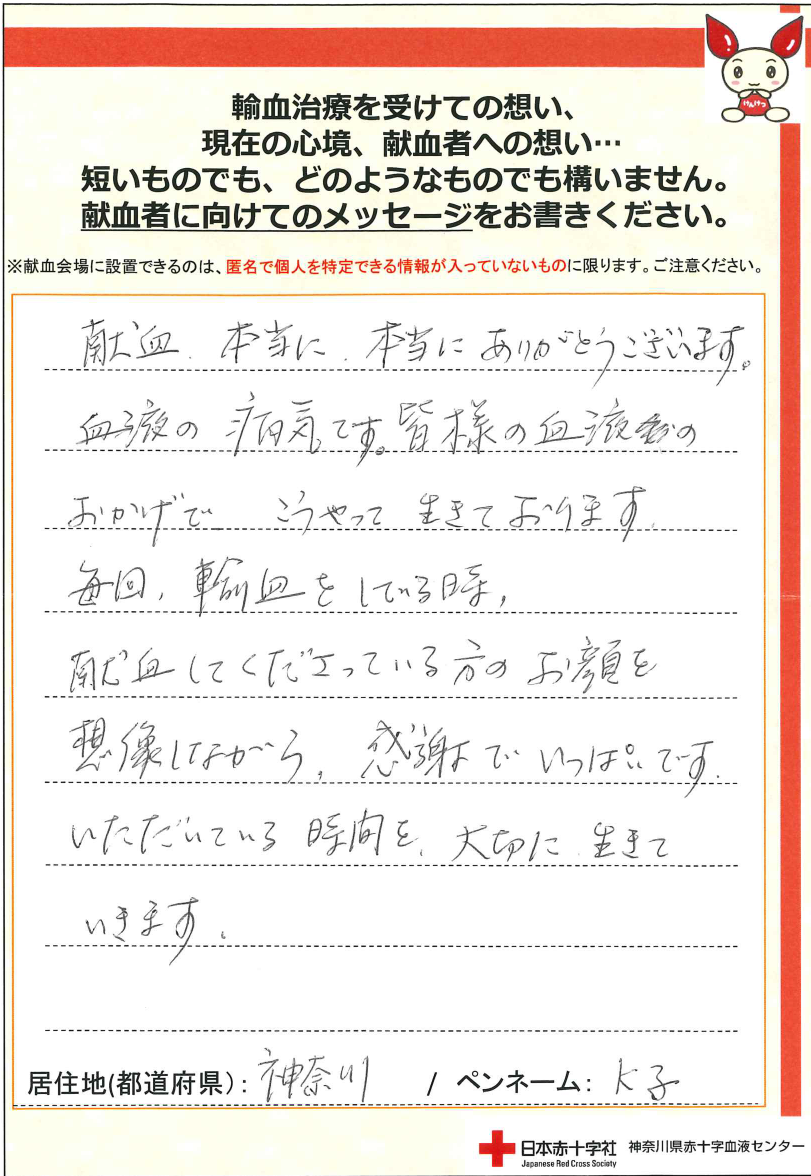 けんけつ
輸血治療を受けての想い、
現在の心境、献血者への想い…
短いものでも、どのようなものでも構いません。
献血者に向けてのメッセージをお書きください。
※献血会場に設置できるのは、匿名で個人を特定できる情報が入っていないものに限ります。ご注意ください。
献血、本当に、本当にありがとうございます。
血液の病気です。皆様の血液の
おかげで こうやって 生きております。
毎回、輸血をしている時、
献血してくださっている方のお顔を
想像しながら、感謝でいっぱいです。
いただいている 時間を、大切に 生きて
いきます。
居住地(都道府県): 神奈川 / ペンネーム: K子
日本赤十字社 神奈川県赤十字血液センター
Japanese Red Cross Society